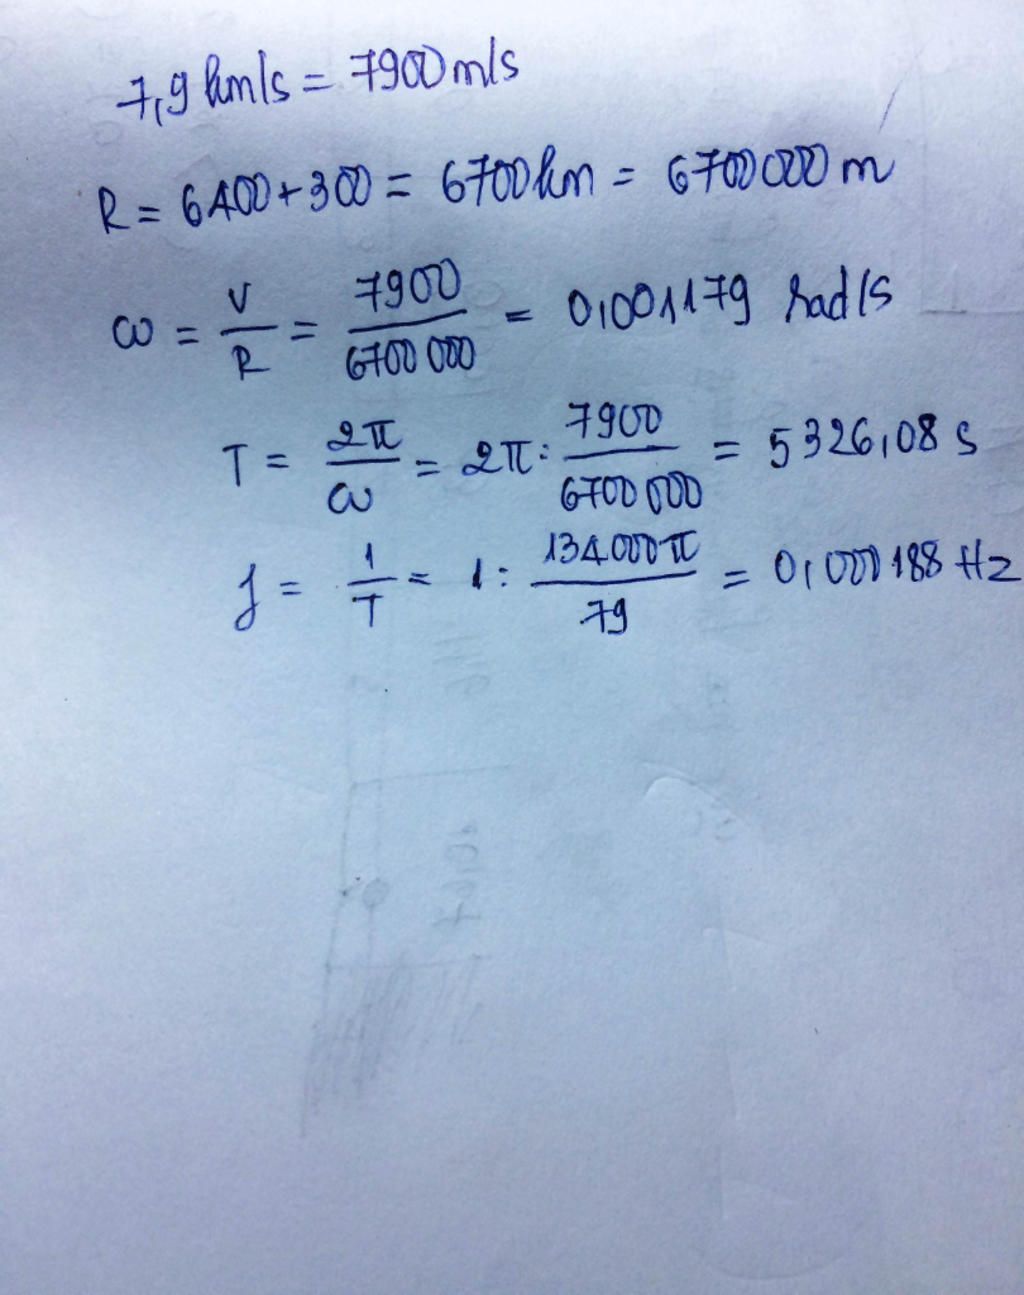 7,9 km/s = 7900 m/s
R = 6400 + 300 = 6700 km = 6700 000 m
ω = V/R = 7900/6700 000 = 0,001179 rad/s
T = 2π/ω = 2π : 7900/6700 000 = 5326,08 s
f = 1/T = 1 : 134000π/79 = 0,000188 Hz